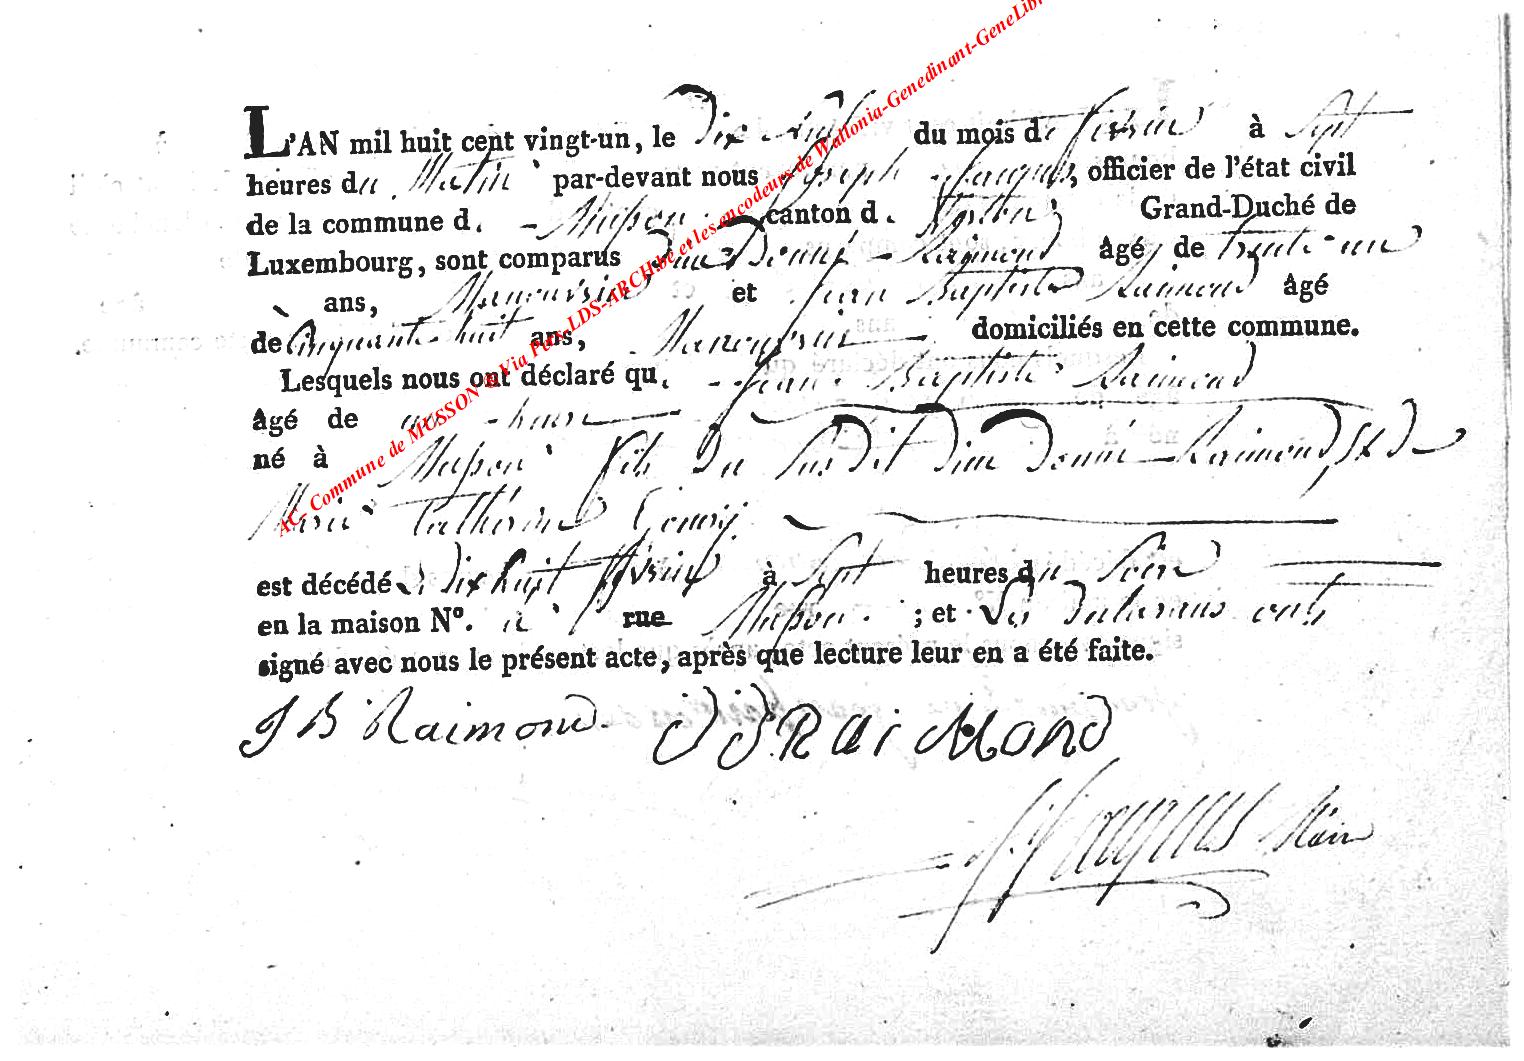 L'AN mil huit cent vingt-un, le Dix Neuf du mois de fevrier à Sept
heures du Matin par-devant nous Joseph Jacques, officier de l'état civil
de la commune d. Musson canton d. Grand-Duché de
Luxembourg, sont comparus Dieu Donné Raimond âgé de trente un
ans, Manouvrier et Jean Baptiste Raimond âgé
de Cinquante huit ans, Manouvrier domiciliés en cette commune.
Lesquels nous ont déclaré qu. Jean Baptiste Raimond
âgé de une heure
né à Musson fils du Susdit Dieu Donné Raimond, & de
Marie Catherine
est décédé Dix huit fevrier à Sept heures du Soir
en la maison N°. à rue Musson ; et Les Declarans ont
signé avec nous le présent acte, après que lecture leur en a été faite.
J B Raimond D D RaiMond
J. Jacques Maire
AC- Commune de MUSSON @ Via Pers-LDS-ARCH.be et les encodeurs de Wallonia-Genedinant-GeneLib